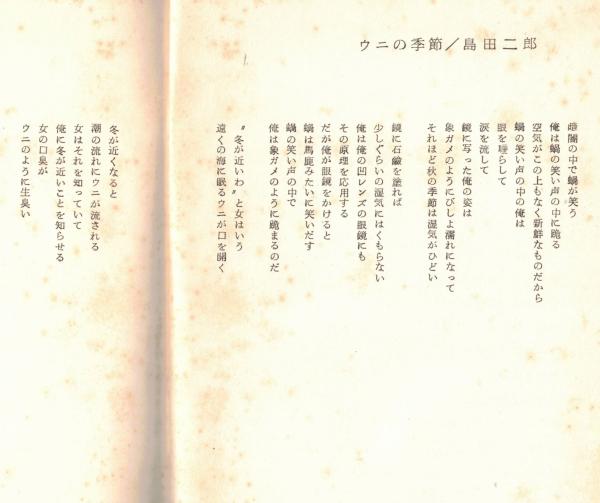 ウニの季節／島田二郎
暗闇の中で蝸が笑う
俺は蝸の笑い声の中に跪る
空気がこの上もなく新鮮なものだから
蝸の笑い声の中の俺は
眼を晴らして
涙を流して
鏡に写った俺の姿は
象ガメのようにびしょ濡れになって
それほど秋の季節は湿気がひどい
鏡に石鹸を塗れば
少しぐらいの湿気にはくもらない
俺は俺の凹レンズの眼鏡にも
その原理を応用する
だが俺が眼鏡をかけると
蝸は馬鹿みたいに笑いだす
蝸の笑い声の中で
俺は象ガメのように跪まるのだ
〝冬が近いわ〟と女はいう
遠くの海に眠るウニが口を開く
冬が近くなると
潮の流れにウニが流される
女はそれを知っていて
俺に冬が近いことを知らせる
女の口臭が
ウニのように生臭い